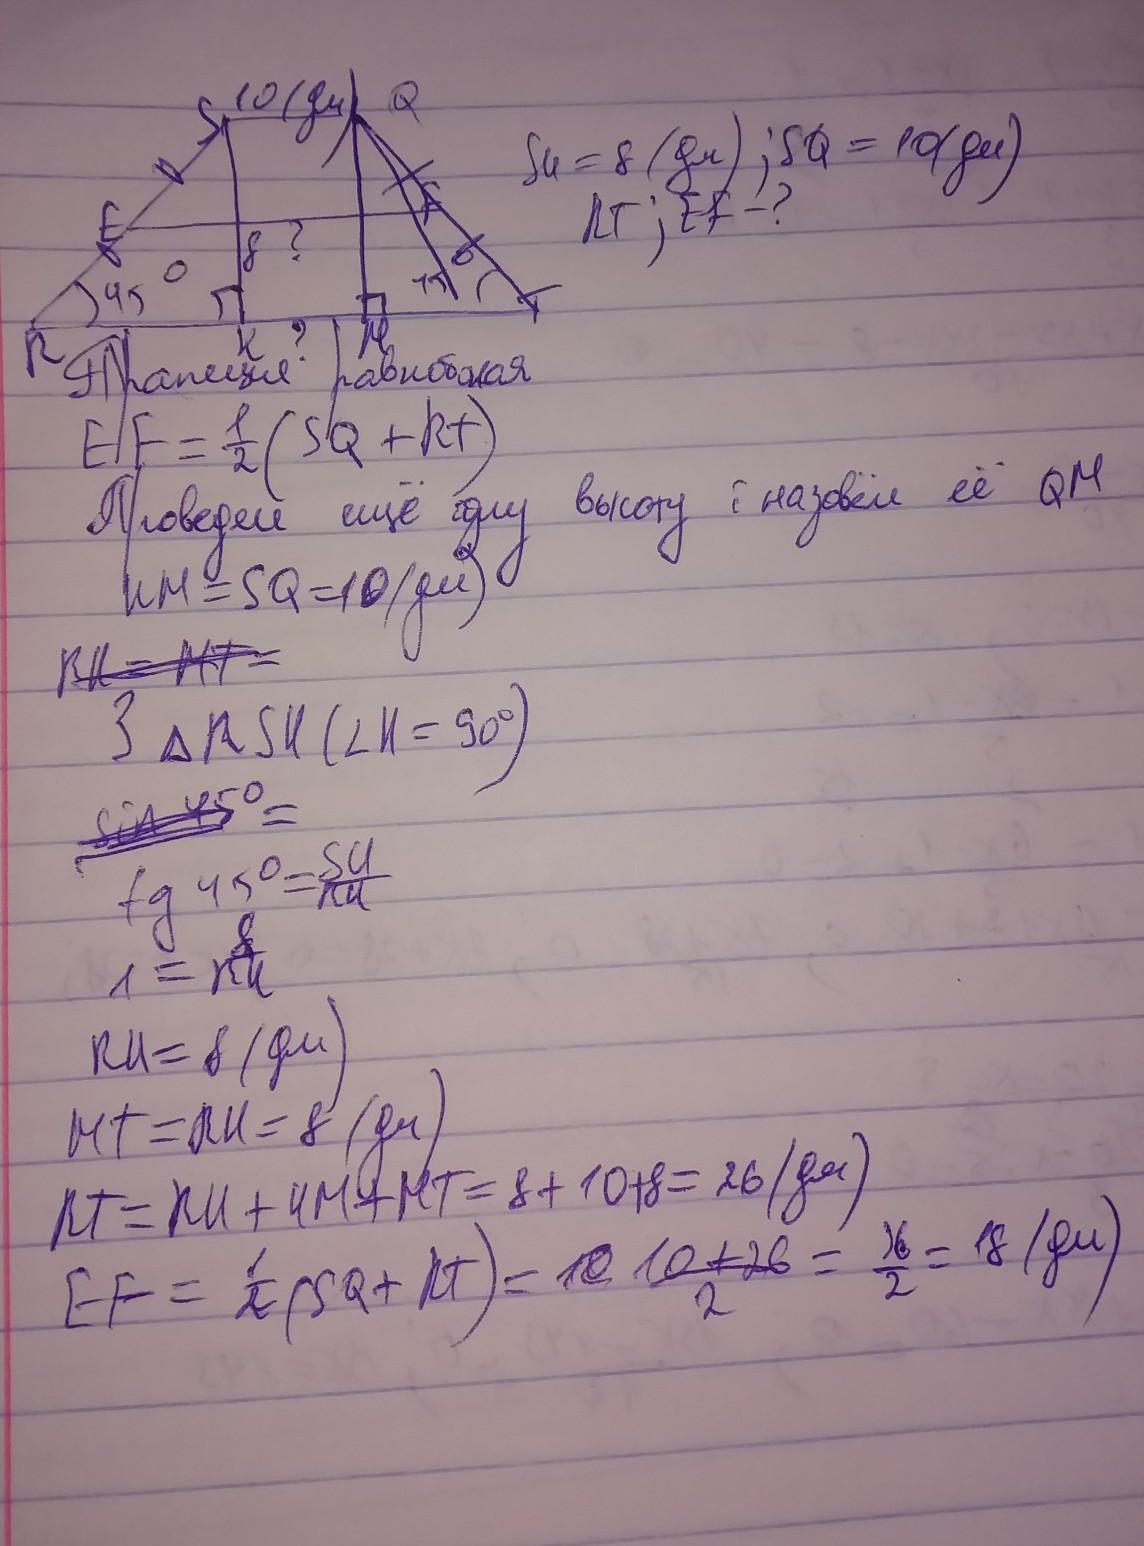 S 10 (дм) Q
SK = 8 (дм); SQ = 10(дм)
RT; EF - ?
E 8 ? F
45° 45
R K ? M T
Трапеция равнобокая
EF = 1/2 (SQ + RT)
Проведём ещё одну высоту и назовём её QM
KM = SQ = 10 (дм)
RK = MT =
∃ △ RSK (∠K = 90°)
sin 45° =
tg 45° = SK/RK
1 = 8/RK
RK = 8 (дм)
MT = RK = 8 (дм)
RT = RK + KM + MT = 8 + 10 + 8 = 26 (дм)
EF = 1/2 (SQ + RT) = 10 10 + 26/2 = 36/2 = 18 (дм)